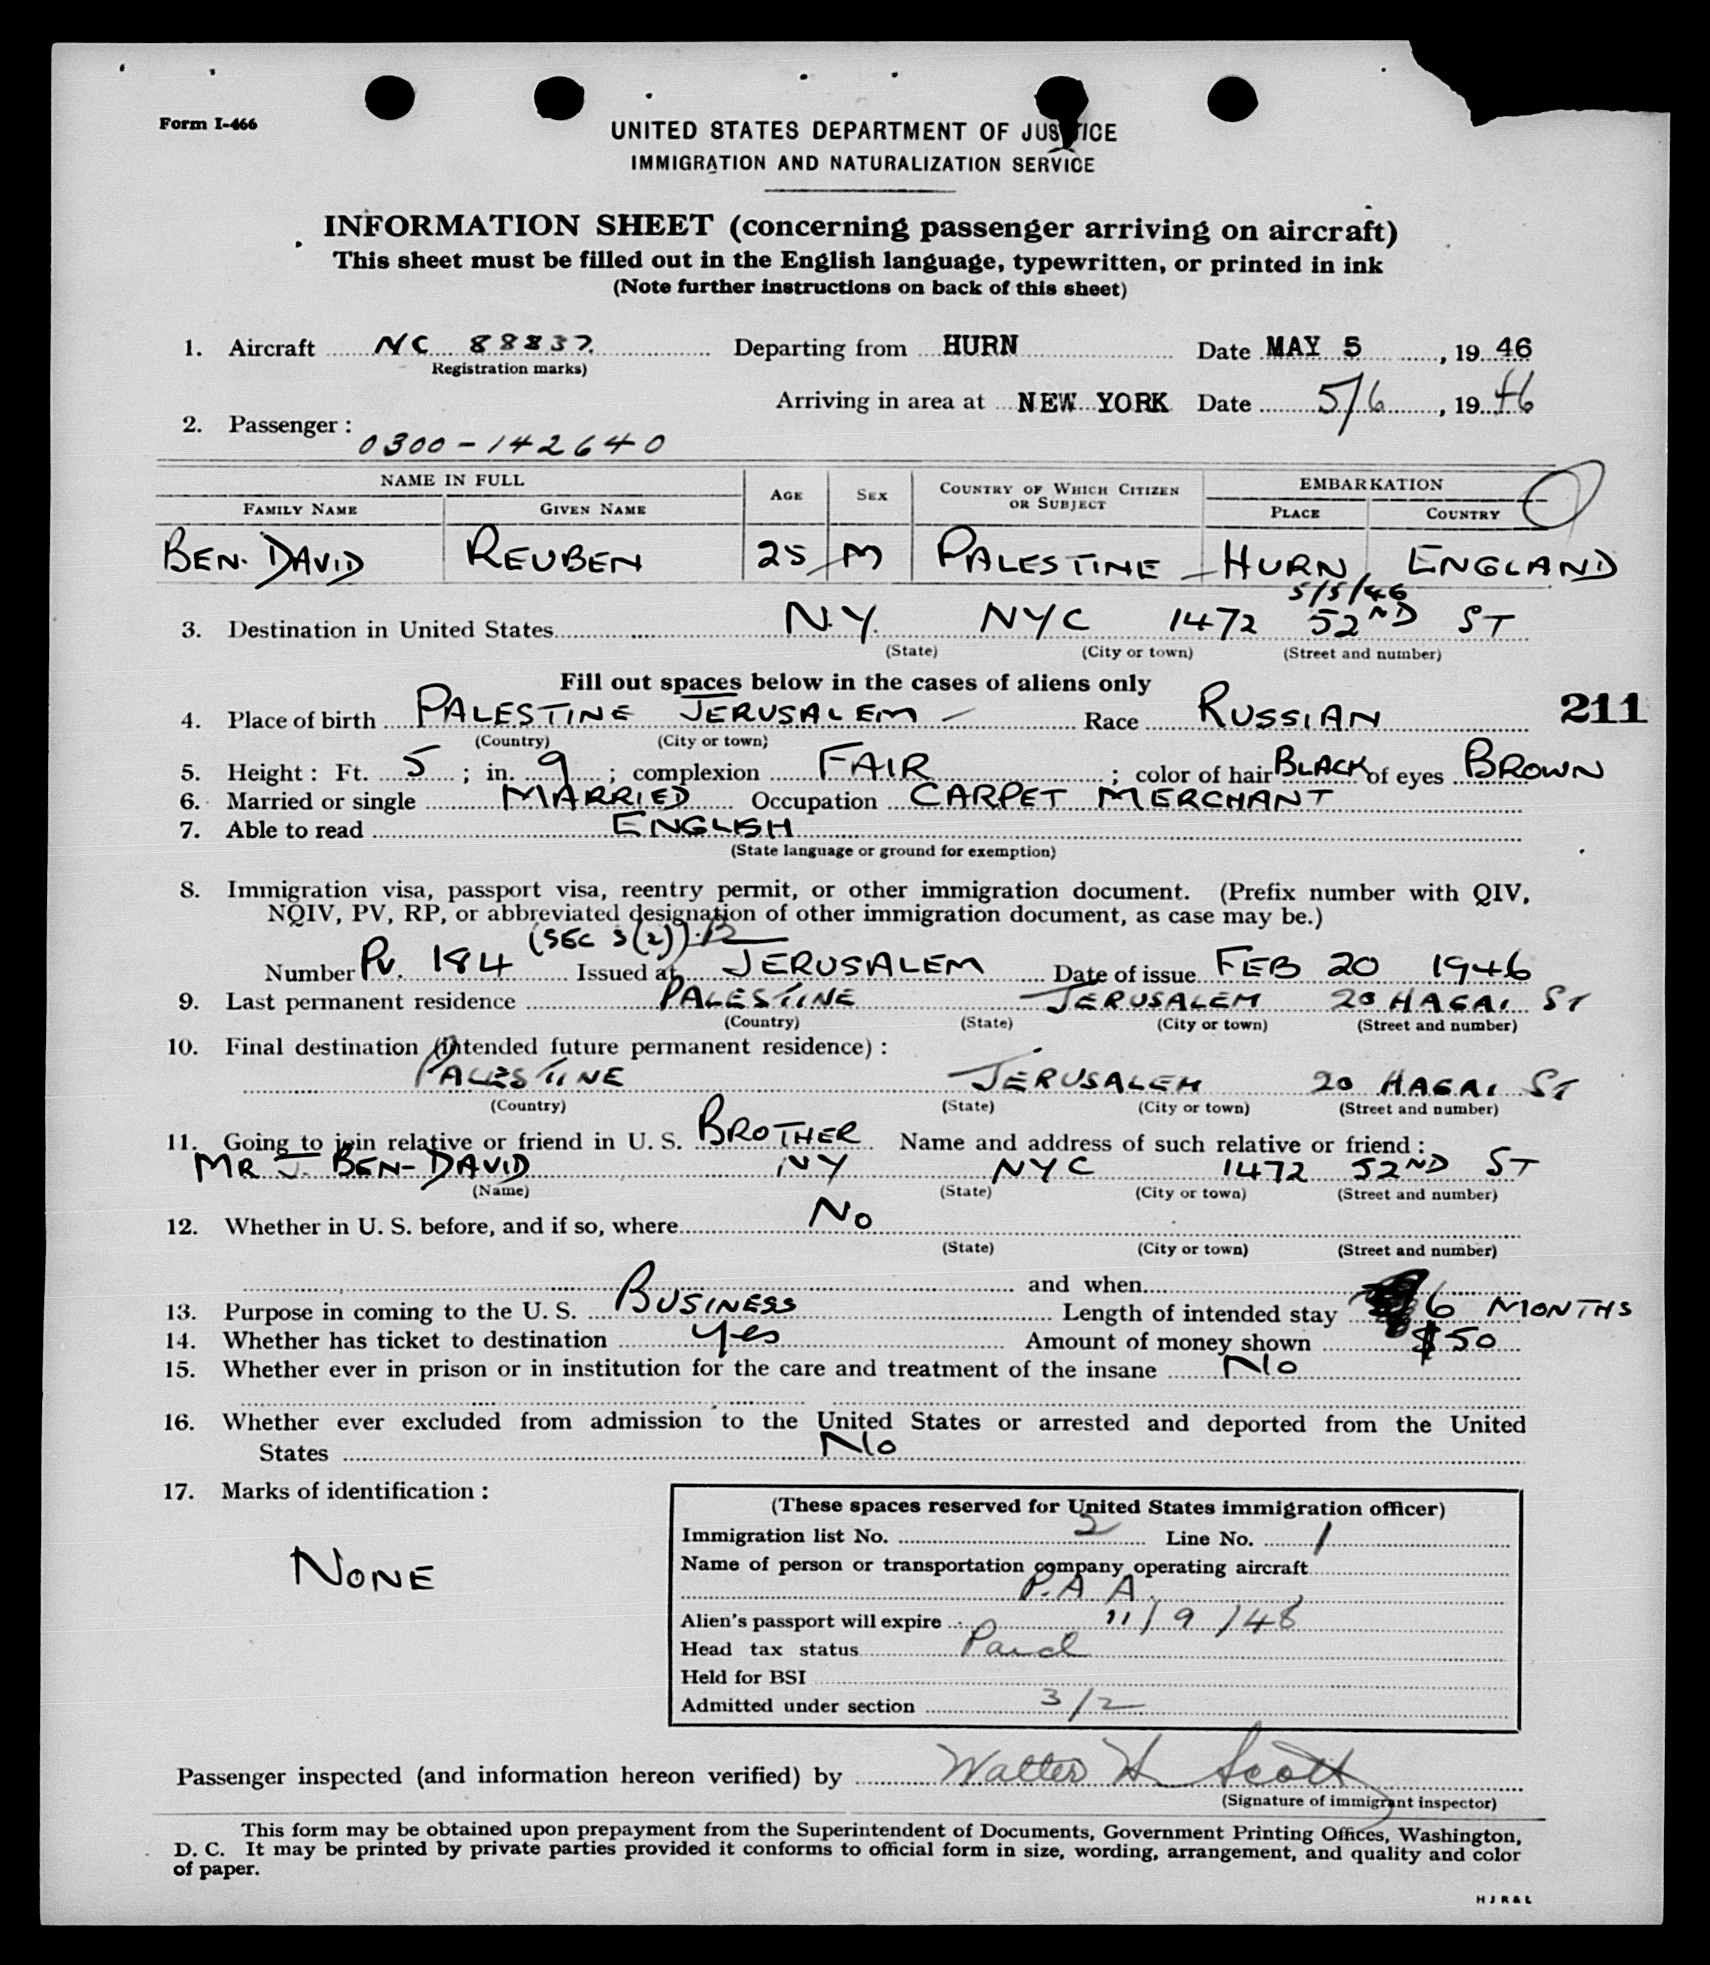 Form I-466
UNITED STATES DEPARTMENT OF JUSTICE
IMMIGRATION AND NATURALIZATION SERVICE
INFORMATION SHEET (concerning passenger arriving on aircraft)
This sheet must be filled out in the English language, typewritten, or printed in ink
(Note further instructions on back of this sheet)
1. Aircraft NC 88837 Departing from HURN Date MAY 5, 1946
Registration marks)
Arriving in area at NEW YORK Date 5/6, 1946
2. Passenger:
0300-142640
NAME IN FULL AGE SEX COUNTRY OF WHICH CITIZEN OR SUBJECT EMBARKATION
FAMILY NAME GIVEN NAME PLACE COUNTRY
BEN-DAVID REUBEN 25 M PALESTINE HURN ENGLAND
5/5/46
3. Destination in United States N.Y. NYC 1472 52ND ST
(State) (City or town) (Street and number)
Fill out spaces below in the cases of aliens only
4. Place of birth PALESTINE JERUSALEM Race RUSSIAN 211
(Country) (City or town)
5. Height: Ft. 5; in. 9; complexion FAIR; color of hair BLACK of eyes BROWN
6. Married or single MARRIED Occupation CARPET MERCHANT
7. Able to read ENGLISH
(State language or ground for exemption)
8. Immigration visa, passport visa, reentry permit, or other immigration document. (Prefix number with QIV,
NQIV, PV, RP, or abbreviated designation of other immigration document, as case may be.)
(SEC 3(2))
Number PV. 184 Issued at JERUSALEM Date of issue FEB 20 1946
9. Last permanent residence PALESTINE JERUSALEM 20 HAGAI ST
(Country) (State) (City or town) (Street and number)
10. Final destination (intended future permanent residence):
PALESTINE JERUSALEM 20 HAGAI ST
(Country) (State) (City or town) (Street and number)
11. Going to join relative or friend in U. S. BROTHER Name and address of such relative or friend:
MR J. BEN-DAVID NY NYC 1472 52ND ST
(Name) (State) (City or town) (Street and number)
12. Whether in U. S. before, and if so, where NO
(State) (City or town) (Street and number)
and when
13. Purpose in coming to the U. S. BUSINESS Length of intended stay 6 MONTHS
14. Whether has ticket to destination Yes Amount of money shown $50
15. Whether ever in prison or in institution for the care and treatment of the insane NO
16. Whether ever excluded from admission to the United States or arrested and deported from the United
States NO
17. Marks of identification:
NONE
(These spaces reserved for United States immigration officer)
Immigration list No. 2 Line No. 1
Name of person or transportation company operating aircraft
P.A A.
Alien's passport will expire 11/9/48
Head tax status Paid
Held for BSI
Admitted under section 3/2
Passenger inspected (and information hereon verified) by Walter H Scott
(Signature of immigrant inspector)
This form may be obtained upon prepayment from the Superintendent of Documents, Government Printing Offices, Washington,
D. C. It may be printed by private parties provided it conforms to official form in size, wording, arrangement, and quality and color
of paper.
H J R & L